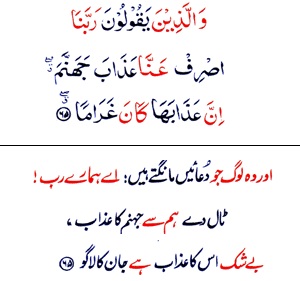 وَالَّذِيْنَ يَقُوْلُوْنَ رَبَّنَا
اصْرِفْ عَنَّا عَذَابَ جَهَنَّمَ ۖ
اِنَّ عَذَابَهَا كَانَ غَرَامًا ۖ ﴿۶۵﴾
اور وہ لوگ جو دُعائیں مانگتے ہیں: اے ہمارے رب !
ٹال دے ہم سے جہنم کا عذاب ،
بے شک اس کا عذاب ہے جان کا لاگو ﴿۶۵﴾